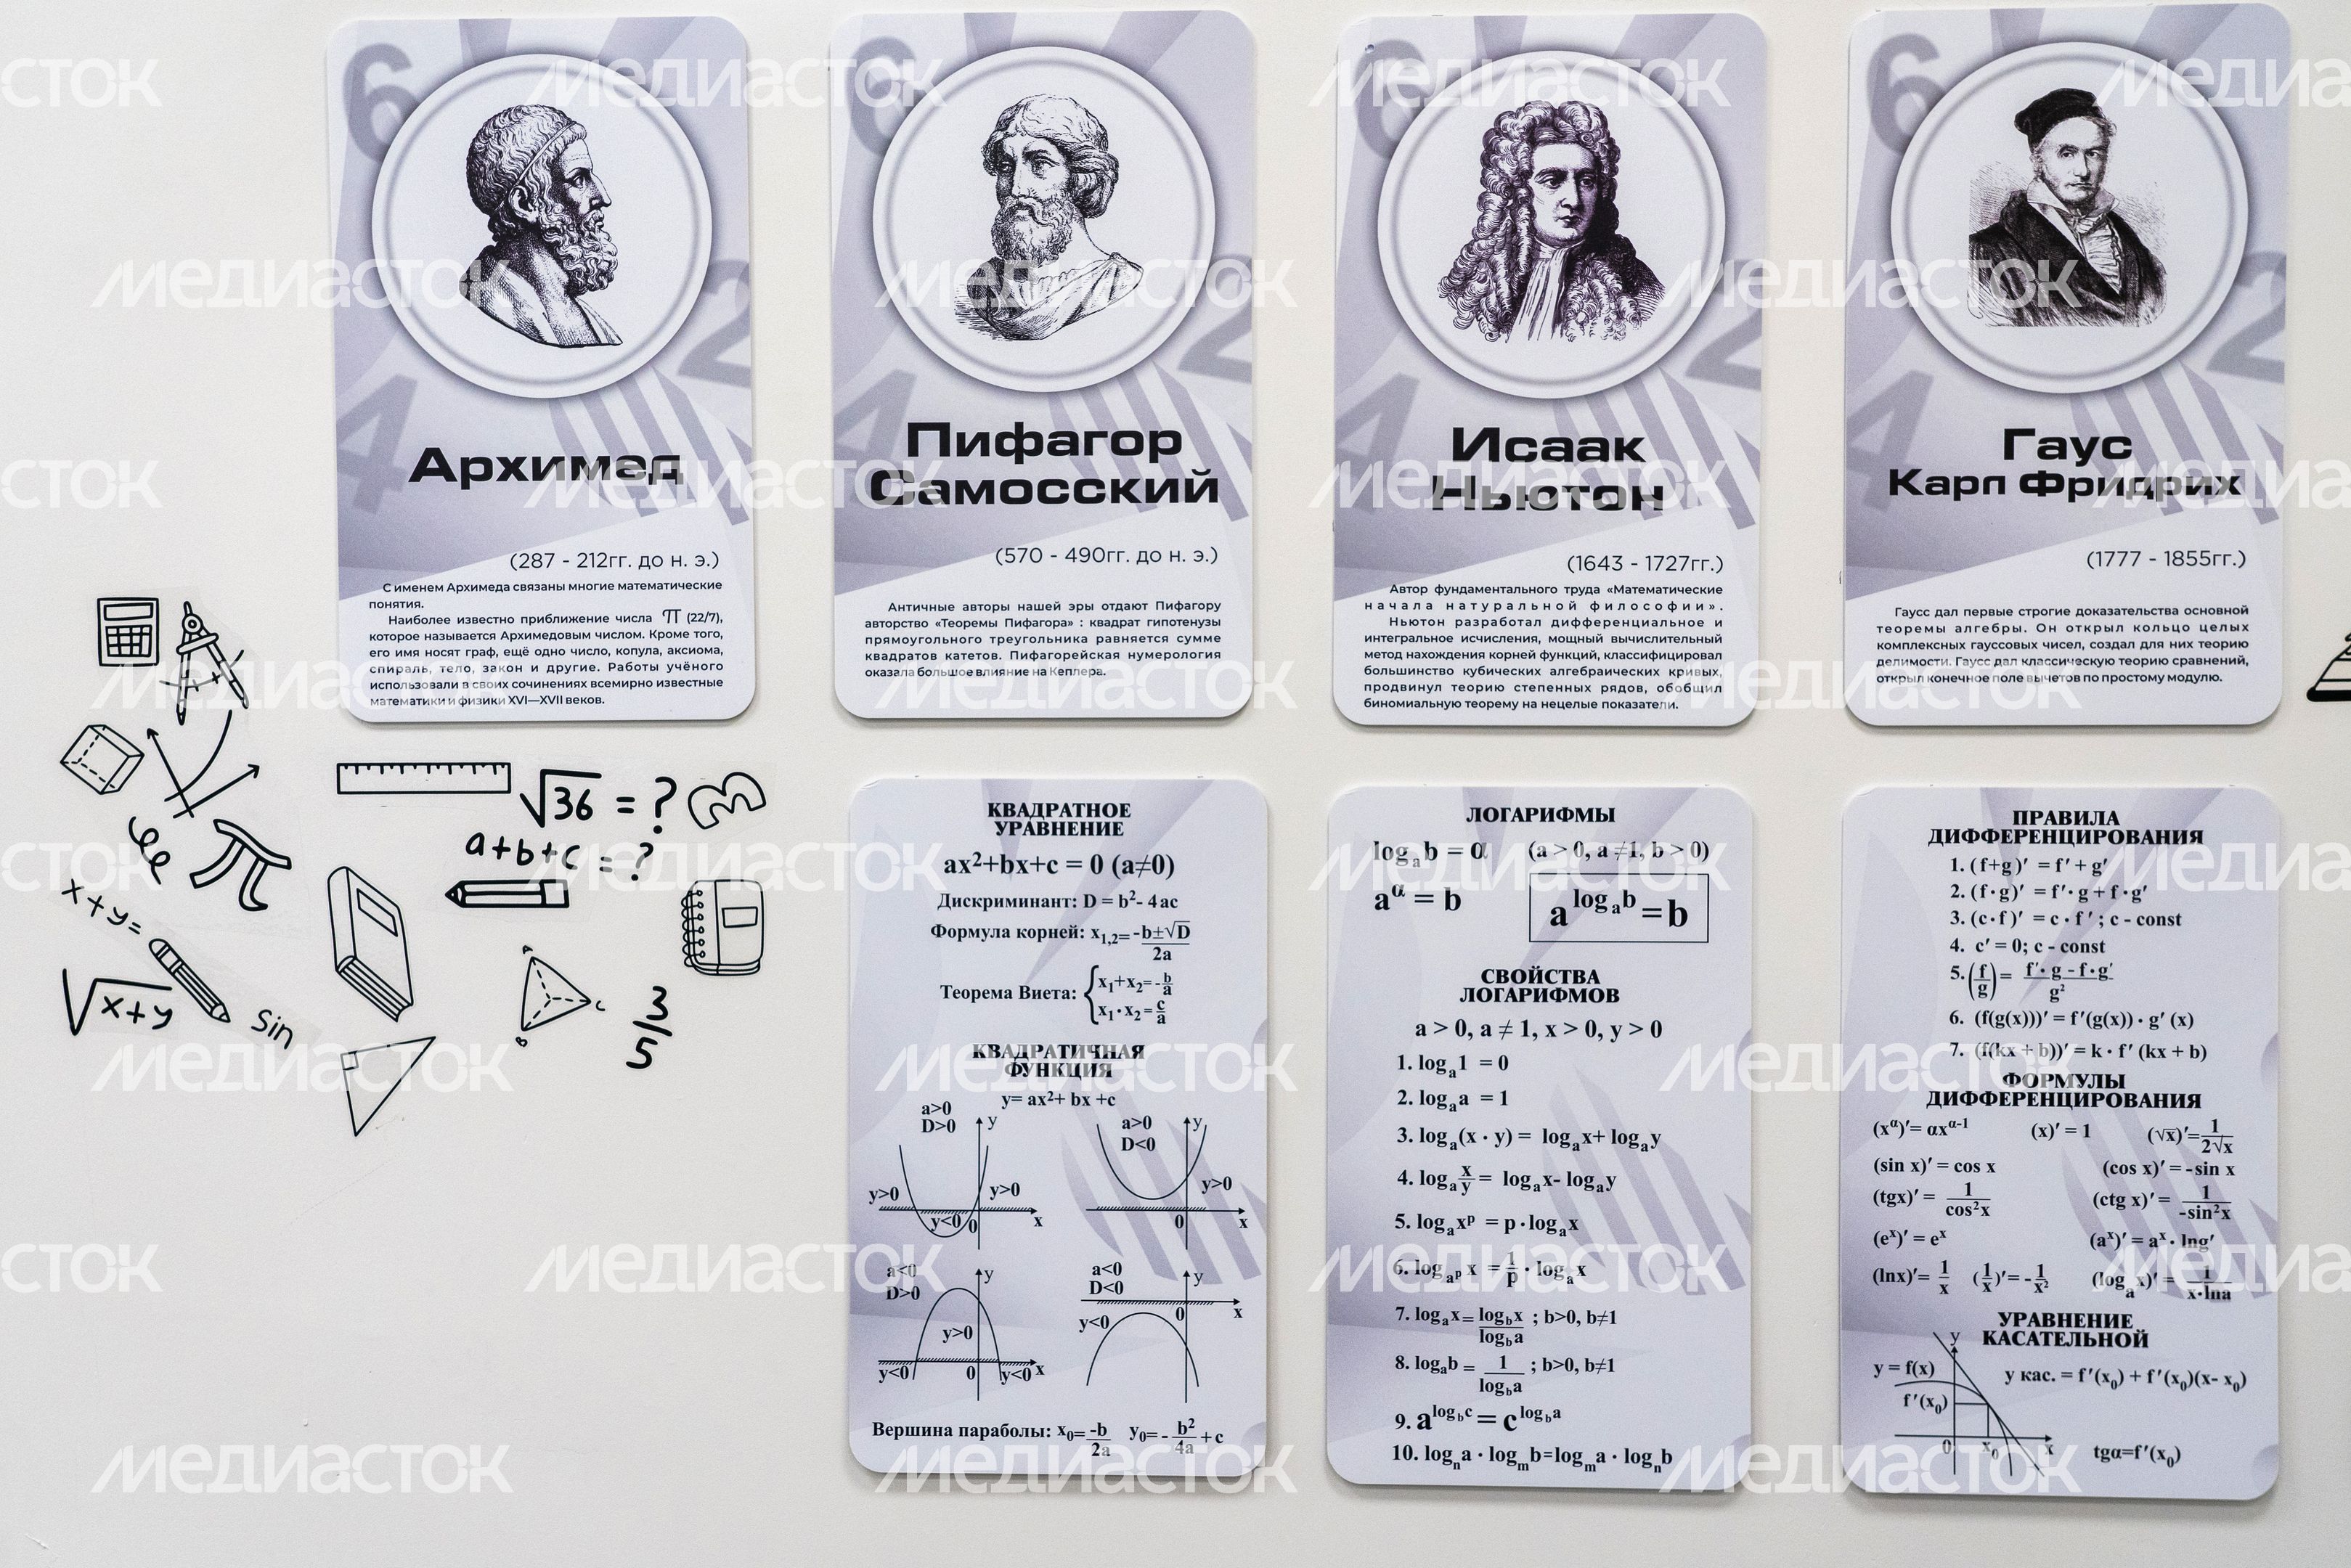 Архимед
(287 - 212гг. до н. э.)
С именем Архимеда связаны многие математические
понятия.
Наиболее известно приближение числа π (22/7),
которое называется Архимедовым числом. Кроме того,
его имя носят граф, ещё одно число, копула, аксиома,
спираль, тело, закон и другие. Работы учёного
использовали в своих сочинениях всемирно известные
математики и физики XVI—XVII веков.
Пифагор
Самосский
(570 - 490гг. до н. э.)
Античные авторы нашей эры отдают Пифагору
авторство «Теоремы Пифагора» : квадрат гипотенузы
прямоугольного треугольника равняется сумме
квадратов катетов. Пифагорейская нумерология
оказала большое влияние на Кеплера.
Исаак
Ньютон
(1643 - 1727гг.)
Автор фундаментального труда «Математические
начала натуральной философии».
Ньютон разработал дифференциальное и
интегральное исчисления, мощный вычислительный
метод нахождения корней функций, классифицировал
большинство кубических алгебраических кривых,
продвинул теорию степенных рядов, обобщил
биномиальную теорему на нецелые показатели.
Гаус
Карл Фридрих
(1777 - 1855гг.)
Гаусс дал первые строгие доказательства основной
теоремы алгебры. Он открыл кольцо целых
комплексных гауссовых чисел, создал для них теорию
делимости. Гаусс дал классическую теорию сравнений,
открыл конечное поле вычетов по простому модулю.
√36 = ?
3
a+b+c = ?
π
x+y=
√x+y
sin
A
B
C
3/5
КВАДРАТНОЕ
УРАВНЕНИЕ
ax²+bx+c = 0 (a≠0)
Дискриминант: D = b²- 4ac
Формула корней: x₁,₂= -b±√D / 2a
Теорема Виета: { x₁+x₂= -b/a
x₁·x₂ = c/a
КВАДРАТИЧНАЯ
ФУНКЦИЯ
y= ax²+ bx +c
a>0
D>0
y
y>0
y>0
y<0
0
x
a>0
D<0
y
y>0
0
x
a<0
D>0
y
y>0
y<0
0
y<0
x
a<0
D<0
y
0
x
y<0
Вершина параболы: x₀= -b/2a y₀= - b²/4a + c
ЛОГАРИФМЫ
logₐb = α (a > 0, a ≠1, b > 0)
a^α = b
a^logₐb = b
СВОЙСТВА
ЛОГАРИФМОВ
a > 0, a ≠ 1, x > 0, y > 0
1. logₐ1 = 0
2. logₐa = 1
3. logₐ(x · y) = logₐx+ logₐy
4. logₐ x/y = logₐx- logₐy
5. logₐxᵖ = p · logₐx
6. log_aᵖ x = 1/p · logₐx
7. logₐx = log_b x / log_b a ; b>0, b≠1
8. logₐb = 1 / log_b a ; b>0, b≠1
9. a^log_b c = c^log_b a
10. logₙa · logₘb=logₘa · logₙb
ПРАВИЛА
ДИФФЕРЕНЦИРОВАНИЯ
1. (f+g)′ = f′ + g′
2. (f·g)′ = f′·g + f·g′
3. (c·f)′ = c · f′ ; c - const
4. c′ = 0; c - const
5. (f/g) = f′·g - f·g′ / g²
6. (f(g(x)))′ = f′(g(x)) · g′ (x)
7. (f(kx + b))′ = k · f′ (kx + b)
ФОРМУЛЫ
ДИФФЕРЕНЦИРОВАНИЯ
(x^α)′= αx^α-1 (x)′ = 1 (√x)′= 1/2√x
(sin x)′ = cos x (cos x)′ = -sin x
(tgx)′ = 1/cos²x (ctg x)′ = 1/-sin²x
(eˣ)′ = eˣ (aˣ)′ = aˣ · lng′
(lnx)′= 1/x (1/x)′= - 1/x² (logₐx)′ = 1/x·lna
УРАВНЕНИЕ
КАСАТЕЛЬНОЙ
y
y = f(x)
y кас. = f′(x₀) + f′(x₀)(x- x₀)
f′(x₀)
0
x₀
x
tgα=f′(x₀)
медиасток